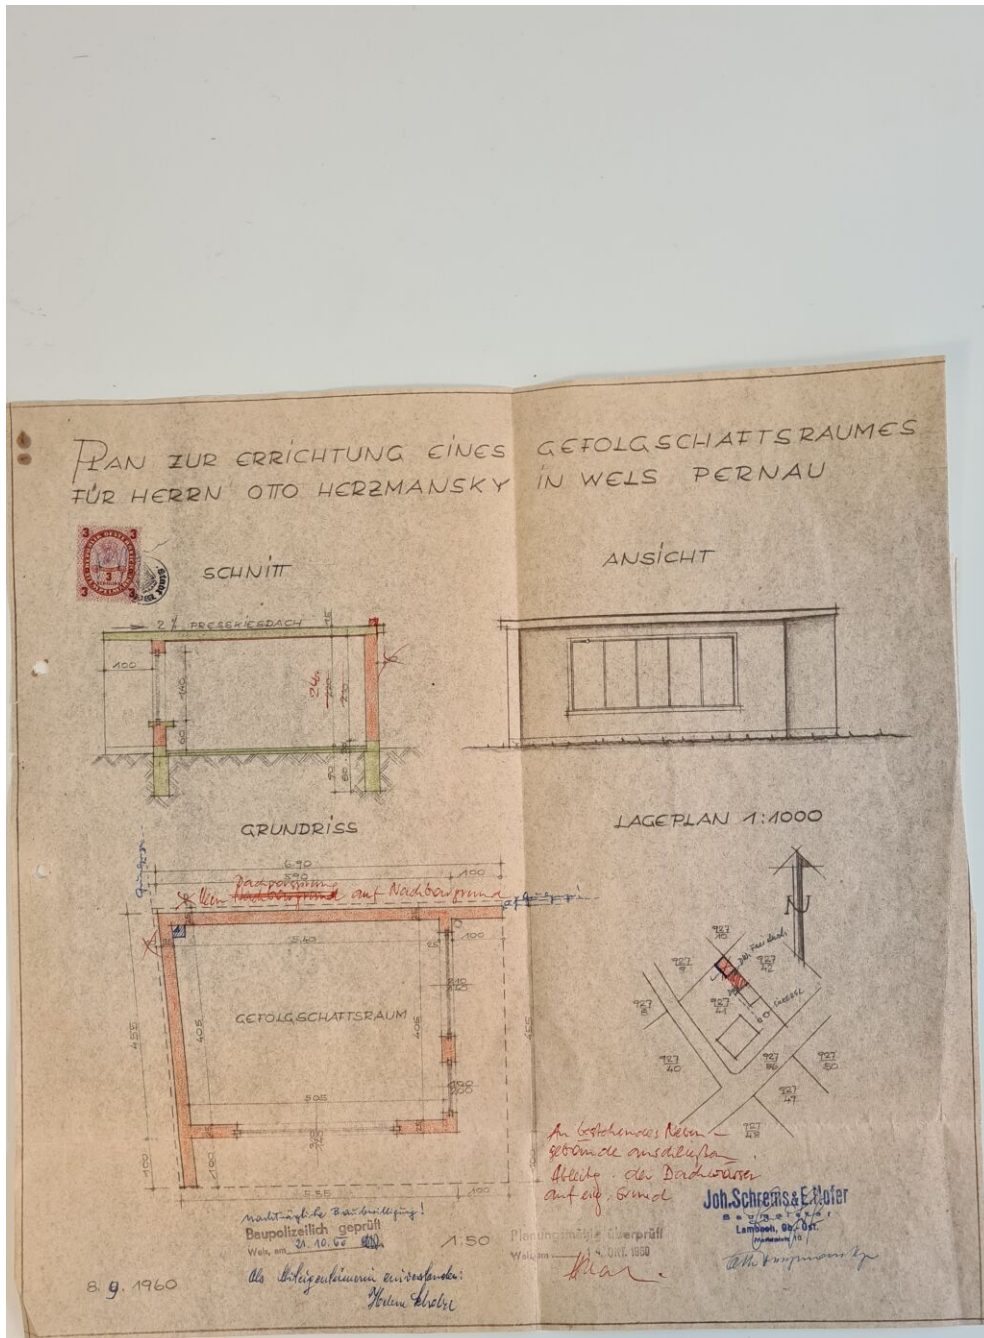 PLAN ZUR ERRICHTUNG EINES GEFOLGSCHAFTSRAUMES
FÜR HERRN OTTO HERZMANSKY IN WELS PERNAU
3 3
3
3 3
SCHNITT
ANSICHT
2% PRESSKIESDACH
15
100
140
60
246
220
230
90
60
GRUNDRISS
LAGEPLAN 1:1000
690
590
100
Dachvorsprung
Kein Nachbargrund auf Nachbargrund
540
25
100
GEFOLGSCHAFTSRAUM
455
405
405
455
505
100
100
535
100
N
927/10
927/9
927/42
927/41
927/8
927/40
927/86
927/50
927/49
927/48
An bestehendes Neben-
gebäude anschließen.
Ableitg. der Dachwässer
auf eig. Grund
Joh. Schrems & E. Hofer
Baumeister
Lambach, Ob.-Öst.
nachträgliche Baubewilligung!
Baupolizeilich geprüft
Wels, am 21.10.60
1:50
Planungsmäßig überprüft
Wels, am 4. OKT. 1960
8.9.1960
Als Miteigentümerin einverstanden:
Helene